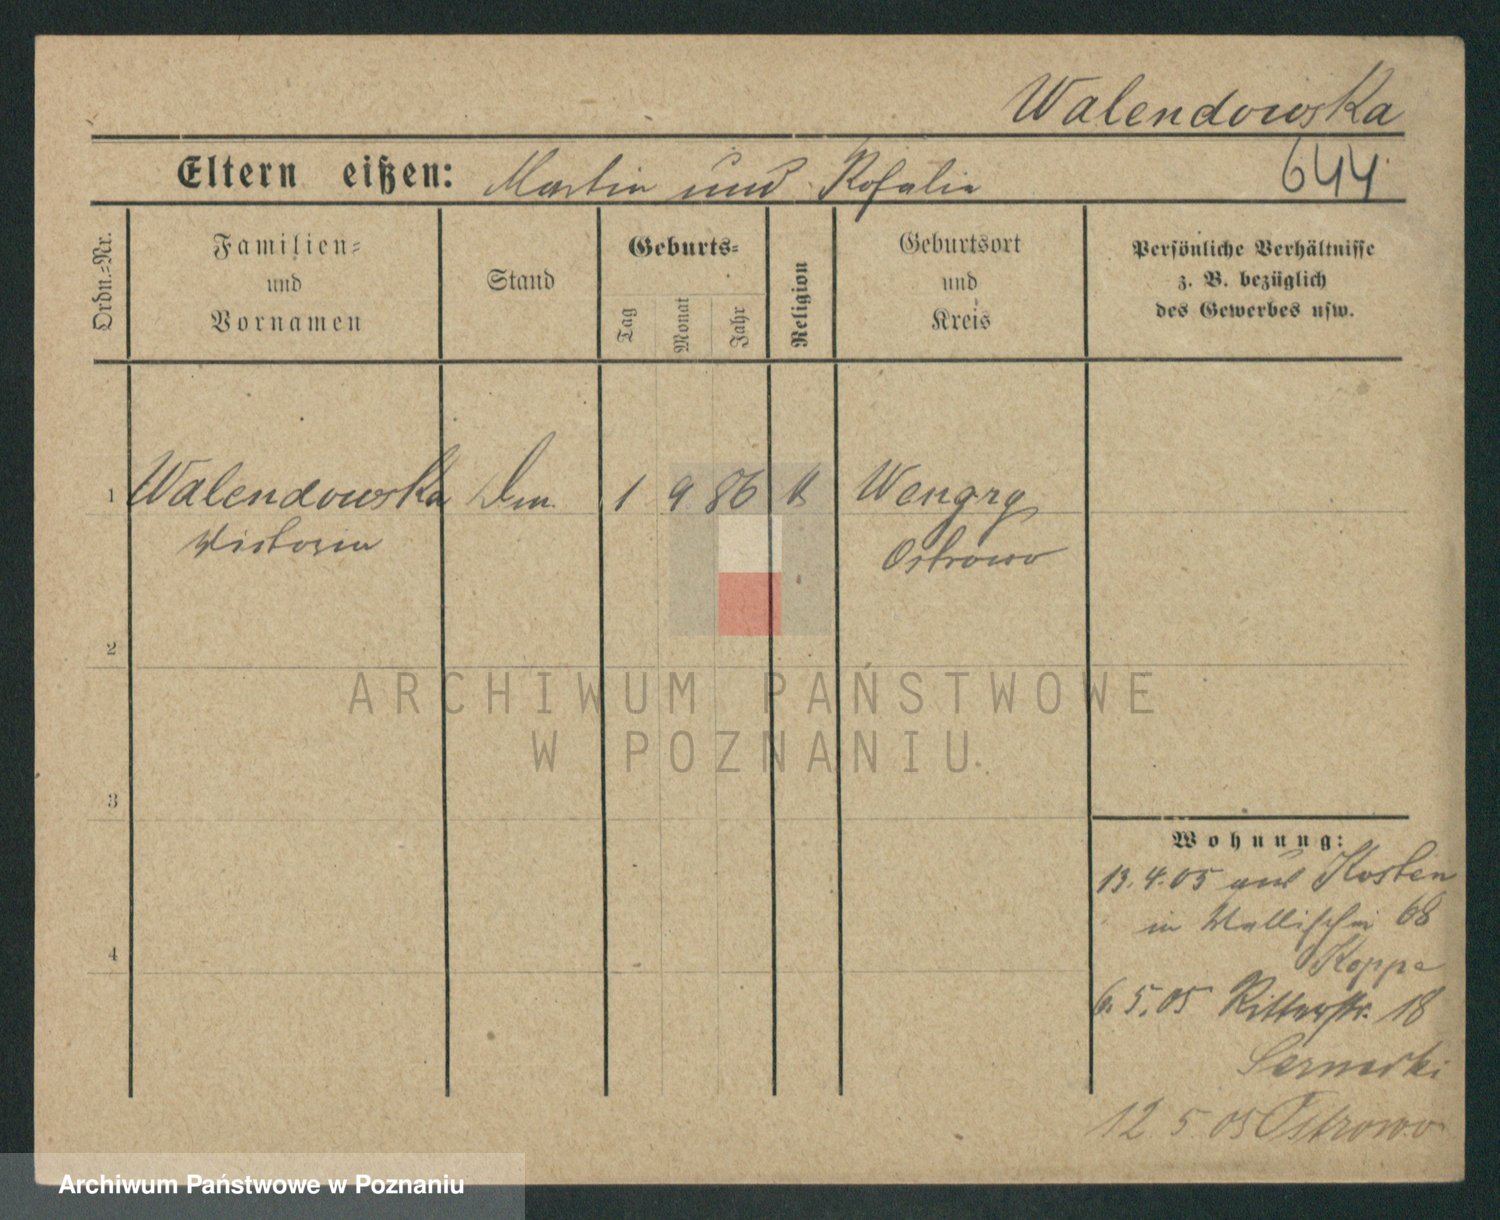 Walendowska
Eltern eißen: Martin und Rosalia
644
Ordn.-Nr.
Familien-
und
Vornamen
Stand
Geburts-
Tag
Monat
Jahr
Religion
Geburtsort
und
Kreis
Persönliche Verhältnisse
z. B. bezüglich
des Gewerbes usw.
1 Walendowska 1 9 86 k Wengry
Victoria Ostrowo
2
3
4
Wohnung:
13.4.05 aus Kosten
in Wallischei 68
Koppe
6.5.05 Ritterstr. 18
12 5 05 Ostrowo
ARCHIWUM PAŃSTWOWE
W POZNANIU
Archiwum Państwowe w Poznaniu